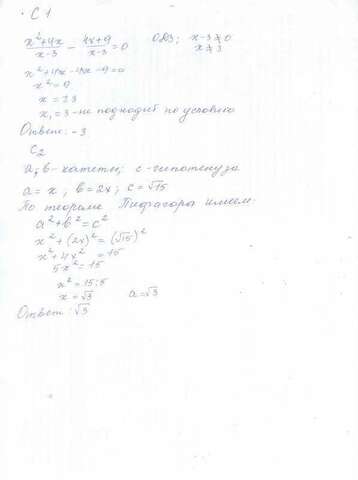 C1
(x²+4x)/(x-3) - (4x+9)/(x-3) = 0 ОДЗ; x-3≠0
x≠3
x²+4x-4x-9=0
x²=9
x=±3
x₁=3 - не подходит по условию
Ответ: -3
C2
a; в - катеты; с - гипотенуза
a=x, в=2x; c=√15
По теореме Пифагора имеем:
a²+в²=c²
x²+(2x)²=(√15)²
x²+4x²=15
5x²=15
x²=15:5
x=√3 a=√3
Ответ: √3